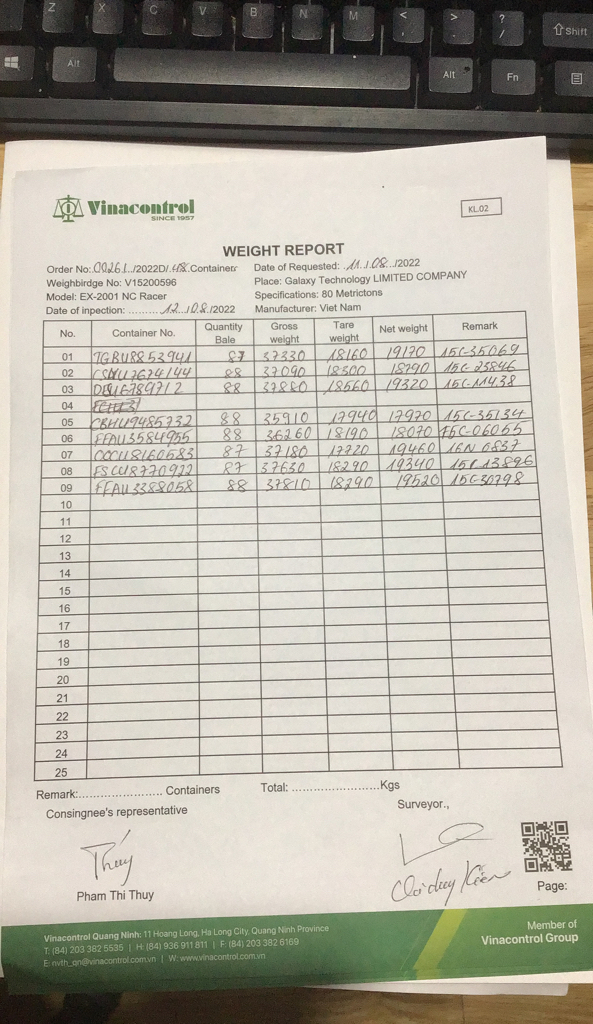 Z X C V B N M < , > . ? / Shift
Alt Alt Fn
Vinacontrol
SINCE 1957
KL.02
WEIGHT REPORT
Order No: 00261../2022D/.418.Containerr Date of Requested: .11../08../2022
Weighbirdge No: V15200596 Place: Galaxy Technology LIMITED COMPANY
Model: EX-2001 NC Racer Specifications: 80 Metrictons
Date of inpection: .........12../08/2022 Manufacturer: Viet Nam
No. Container No. Quantity Bale Gross weight Tare weight Net weight Remark
01 TGBU8853941 87 37330 18160 19170 15C-35069
02 88 37090 18300 18790 15C-23846
03 88 37880 18560 19320 15C-11438
04
05 CBHU9485732 88 35910 17940 17970 15C-35134
06 FFAU3584955 88 36260 18190 18070 15C-06055
07 CCCU8160583 87 37180 17720 19460 16N 0837
08 FSCU8770922 87 37630 18290 19340 15C 13896
09 FFAU3388058 88 37810 18290 19520 15C-30798
10
11
12
13
14
15
16
17
18
19
20
21
22
23
24
25
Remark:...................... Containers Total: .......................Kgs
Consingnee's representative Surveyor.,
Thúy
Pham Thi Thuy Page:
Vinacontrol Quang Ninh: 11 Hoang Long, Ha Long City, Quang Ninh Province
T: (84) 203 382 5535 | H: (84) 936 911 811 | F: (84) 203 382 6169
E: nvth_qn@vinacontrol.com.vn | W: www.vinacontrol.com.vn
Member of
Vinacontrol Group